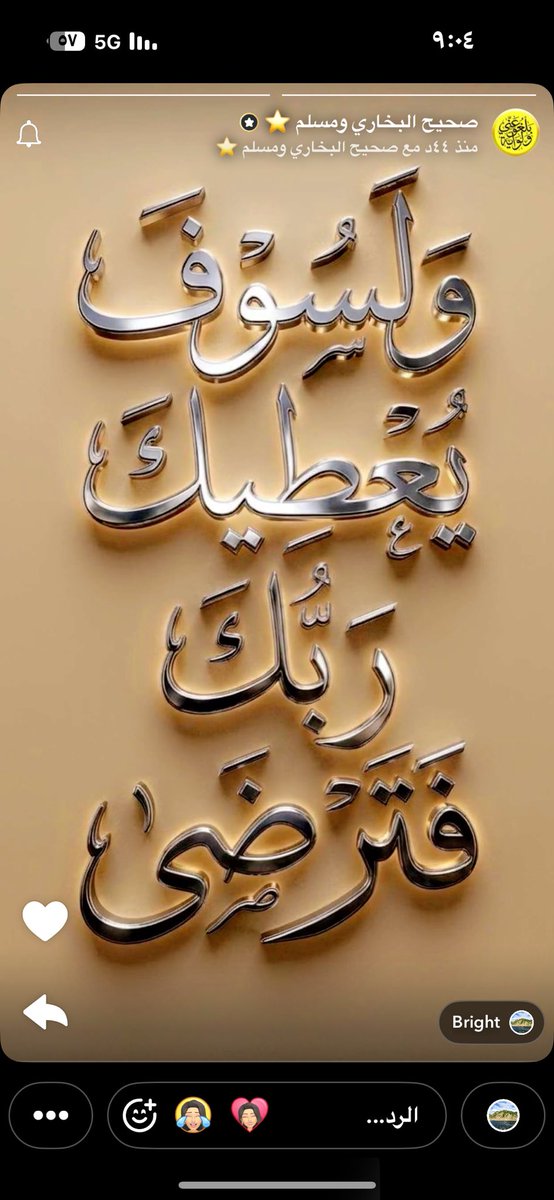 ٩:٠٤
5G ٥٧
صحيح البخاري ومسلم ⭐
منذ ٤٤د مع صحيح البخاري ومسلم ⭐
وَلَسُوْفَ
يُعْطِيكَ
رَبُّكَ
فَتَرْضَىٰ
Bright
الرد...